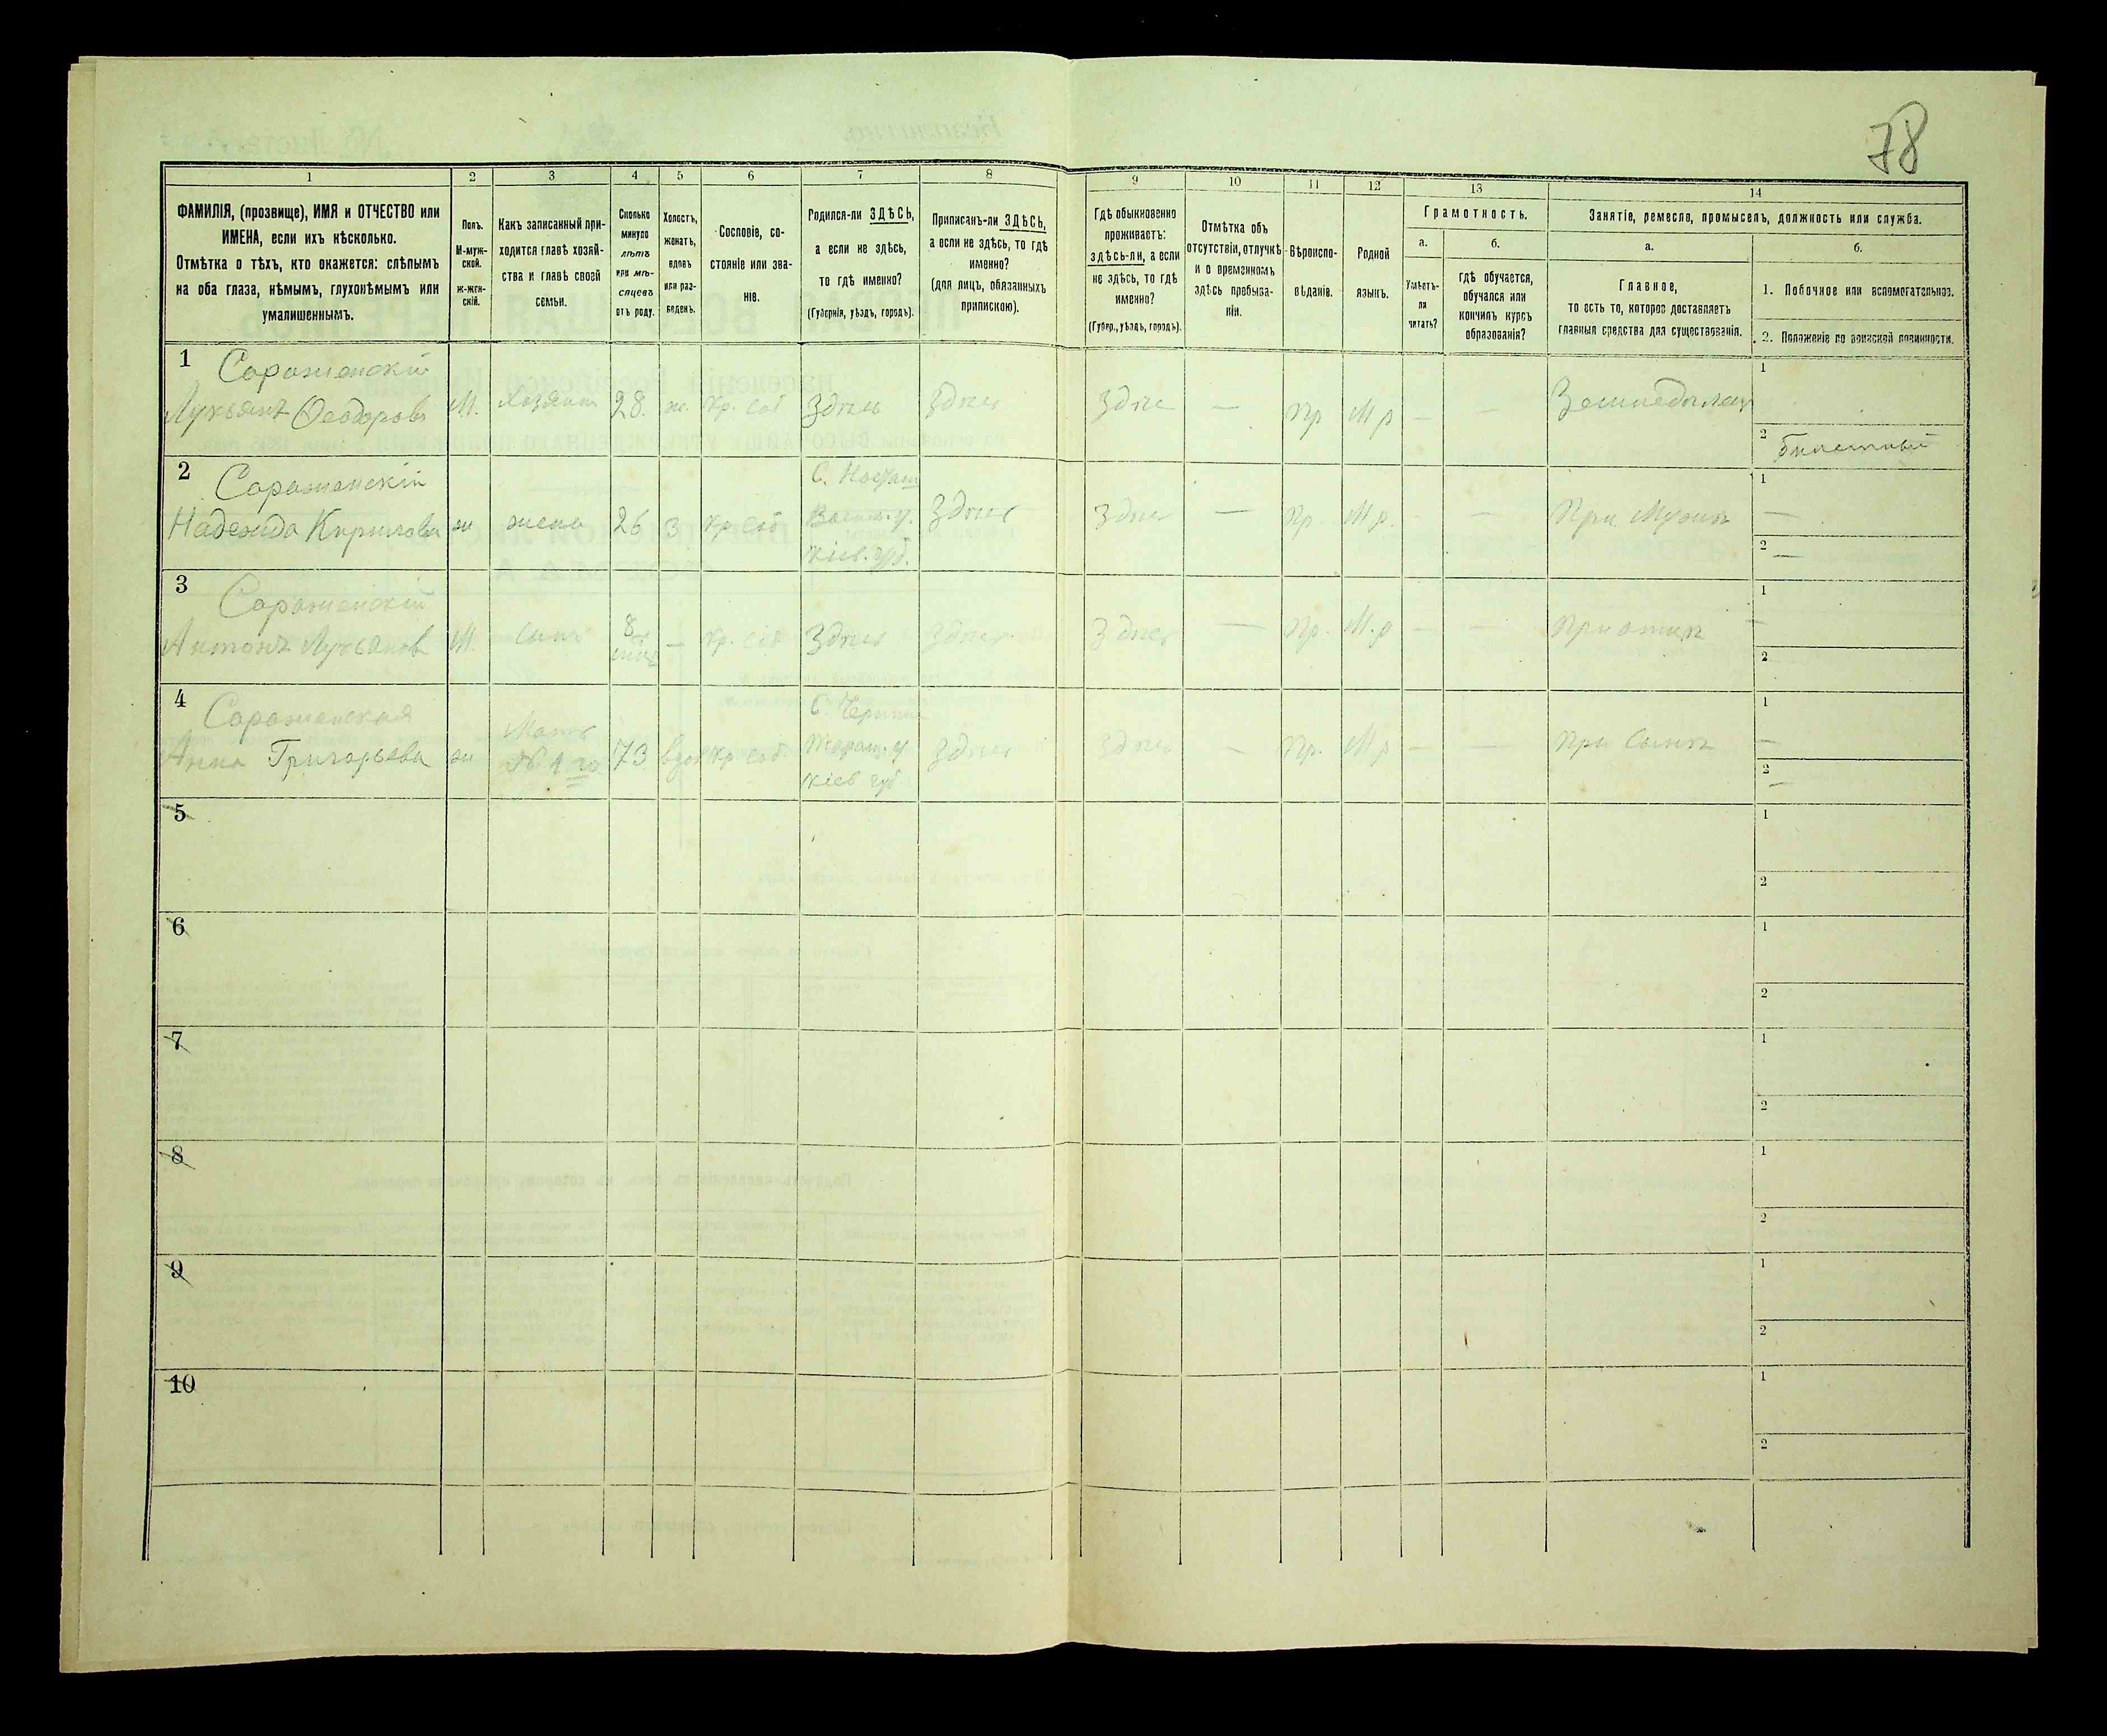 78
1
2
3
4
5
6
7
8
9
10
11
12
13
14
ФАМИЛІЯ, (прозвище), ИМЯ и ОТЧЕСТВО или
ИМЕНА, если ихъ нѣсколько.
Отмѣтка о тѣхъ, кто окажется: слѣпымъ
на оба глаза, нѣмымъ, глухонѣмымъ или
умалишеннымъ.
Полъ.
М-муж-
ской.
ж-жен-
скій.
Какъ записанный при-
ходится главѣ хозяй-
ства и главѣ своей
семьи.
Сколько
минуло
лѣтъ
или мѣ-
сяцевъ
отъ роду.
Холостъ,
женатъ,
вдовъ
или раз-
веденъ.
Сословіе, со-
стояніе или зва-
ніе.
Родился-ли ЗДѢСЬ,
а если не здѣсь,
то гдѣ именно?
(Губернія, уѣздъ, городъ).
Приписанъ-ли ЗДѢСЬ,
а если не здѣсь, то гдѣ
именно?
(для лицъ, обязанныхъ
припискою).
Гдѣ обыкновенно
проживаетъ:
здѣсь-ли, а если
не здѣсь, то гдѣ
именно?
(Губер., уѣздъ, городъ).
Отмѣтка объ
отсутствіи, отлучкѣ
и о временномъ
здѣсь пребыва-
ніи.
Вѣроиспо-
вѣданіе.
Родной
языкъ.
Грамотность.
а.
Умѣетъ-
ли
читать?
б.
гдѣ обучается,
обучался или
кончилъ курсъ
образованія?
Занятіе, ремесло, промыселъ, должность или служба.
а.
Главное,
то есть то, которое доставляетъ
главныя средства для существованія.
б.
1. Побочное или вспомогательное.
2. Положеніе по воинской повинности.
1
Сороженскій
Лукьянъ Феодоровъ
М.
Хозяинъ
28.
ж.
кр. соб
Здѣсь
Здѣсь
Здѣсь
—
Пр
М р
—
—
Земледѣлец
1
2
Билетный
2
Сороженскій
Надежда Кирилова
ж
жена
26
З
кр соб
С.
Васильк. у.
Кіев. губ.
Здѣсь
Здѣсь
—
Пр
М р.
—
—
При Мужѣ
1
—
2
—
3
Сороженскій
Антонъ Лукьянов
М.
Сынъ
8
—
кр. соб
Здѣсь
Здѣсь
Здѣсь
—
Пр.
М. р
—
—
При отцѣ
1
—
2
4
Сороженская
Анна Григорьева
ж
Мать
№ 1 го
73
вдов
кр соб.
С.
Таращ. у
Кіев губ
Здѣсь
Здѣсь
—
Пр.
М р
—
—
При Сынѣ
1
—
2
—
5
1
2
6
1
2
7
1
2
8
1
2
9
1
2
10
1
2